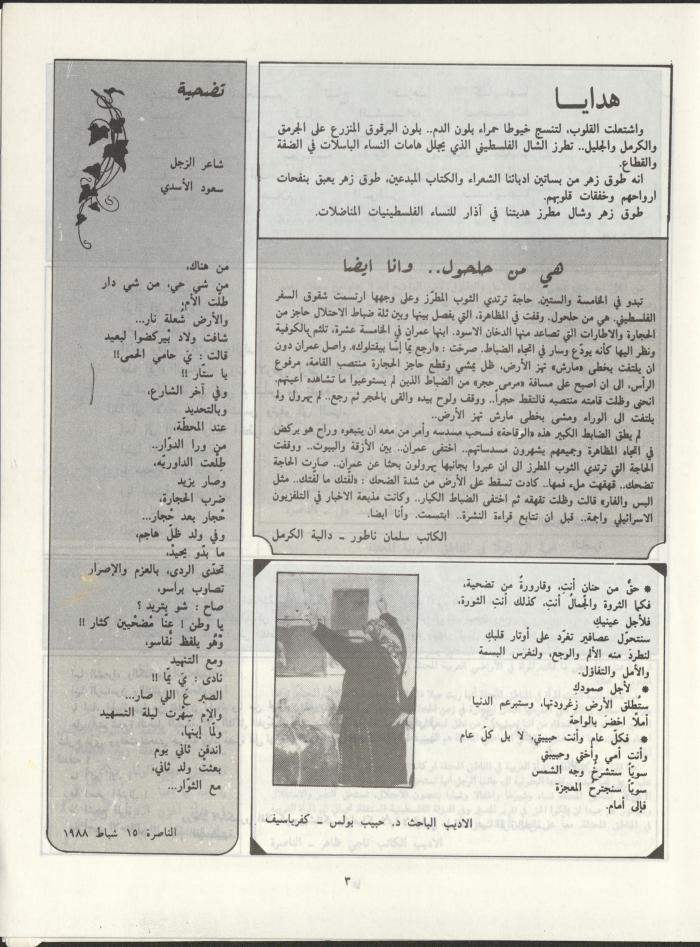 هدايـا
واشتعلت القلوب، لتنسج خيوطا حمراء بلون الدم.. بلون البرقوق المنزرع على الجرمق
والكرمل والجليل.. تطرز الشال الفلسطيني الذي يجلل هامات النساء الباسلات في الضفة
والقطاع.
انه طوق زهر من بساتين ادبائنا الشعراء والكتاب المبدعين، طوق زهر يعبق بنفحات
ارواحهم وخفقات قلوبهم.
طوق زهر وشال مطرز هديتنا في آذار للنساء الفلسطينيات المناضلات.
هي من حلحول.. وانا ايضا
تبدو في الخامسة والستين. حاجة ترتدي الثوب المطرّز وعلى وجهها ارتسمت شقوق السفر
الفلسطيني. هي من حلحول. وقفت في المظاهرة، التي يفصل بينها وبين ثلة ضباط الاحتلال حاجز من
الحجارة والاطارات التي تصاعد منها الدخان الاسود. ابنها عمران في الخامسة عشرة، تلثم بالكوفية
ونظر اليها كأنه يودّع وسار في اتجاه الضباط. صرخت : «ارجع يمّا إسّا بيقتلوك». واصل عمران دون
ان يلتفت بخطى «مارش» تهز الأرض، ظل يمشي وقطع حاجز الحجارة منتصب القامة، مرفوع
الرأس، الى ان اصبح على مسافة «مرمى حجر» من الضباط الذين لم يستوعبوا ما تشاهده اعينهم.
انحنى وظلت قامته منتصبه فالتقط حجراً.. ووقف ولوح بيده والقى بالحجر ثم رجع.. لم يهرول ولم
يلتفت الى الوراء ومشى بخطى مارش تهز الأرض..
لم يطق الضابط الكبير هذه «الوقاحة» فسحب مسدسه وأمر من معه ان يتبعوه وراح هو يركض
في اتجاه المظاهرة وجميعهم يشهرون مسدساتهم.. اختفى عمران.. بين الأزقة والبيوت.. ووقفت
الحاجة التي ترتدي الثوب المطرز الى ان عبروا بجانبها يهرولون بحثا عن عمران.. صارت الحاجة
تضحك.. قهقهت ملء فمها.. كادت تسقط على الأرض من شدة الضحك : «لفّتك ما لفّتك.. مثل
البس والفار» قالت وظلت تقهقه ثم اختفى الضباط الكبار.. وكانت مذيعة الاخبار في التلفزيون
الاسرائيلي واجمة.. قبل ان نتابع قراءة النشرة.. ابتسمت. وأنا ايضا.
الكاتب سلمان ناطور ــ دالية الكرمل
* حقٌّ من حنان أنتِ، وقارورةٌ من تضحية،
فكما الثروة والجمالُ أنتِ، كذلك أنتِ الثورة،
فلأجل عينيكِ
سنتحوّل عصافير تغرّد على أوتار قلبكِ
لنطردَ منه الألم والوجع، ولنغرس البسمة
والأمل والتفاؤل.
* لأجل صمودكِ
ستطلق الأرض زغرودتها، وستبرعم الدنيا
أملًا اخضرَ بالواحة
* فكلّ عام وأنت حبيبتي، لا بل كلّ عام
وأنتِ أمي وأختي وحبيبتي
سويّاً سنشرخُ وجه الشمس
سويّاً سنجترحُ المعجزة
فإلى أمام.
الاديب الباحث د. حبيب بولس ــ كفرياسيف
تضحية
شاعر الزجل
سعود الأسدي
من هناك،
من شي حي، من شي دار
طلّت الأم،
والأرض شُعلة نار...
شافت ولاد بيركضوا لبعيد
قالت : يَ حاميَ الحمى!!
يا ستّار !!
وفي آخر الشارع،
وبالتحديد
عند المحطّة،
من ورا الدوّار..
طلعت الداوريّة،
وصار يزيد
ضرب الحجارة،
حْجار بعد حْجار...
وفي ولد ظلّ هاجم،
ما بدو يحيدْ،
تحدّى الردى، بالعزم والإصرار
تصاوب براسو،
صاح : شو بتريد ؟
يا وطن ! عنا مْضحّيين كثار !!
وْهُو يلفظ نْفاسو،
ومع التنهيد
نادى : يَ يمّا !!
الصبر عَ اللي صار...
والإم سهْرت ليلة التسهيد
ولمّا إبنها،
اندفن ثاني يوم
بعثتْ ولد ثاني،
مع الثوّار...
الناصرة ١٥ شباط ١٩٨٨
٣